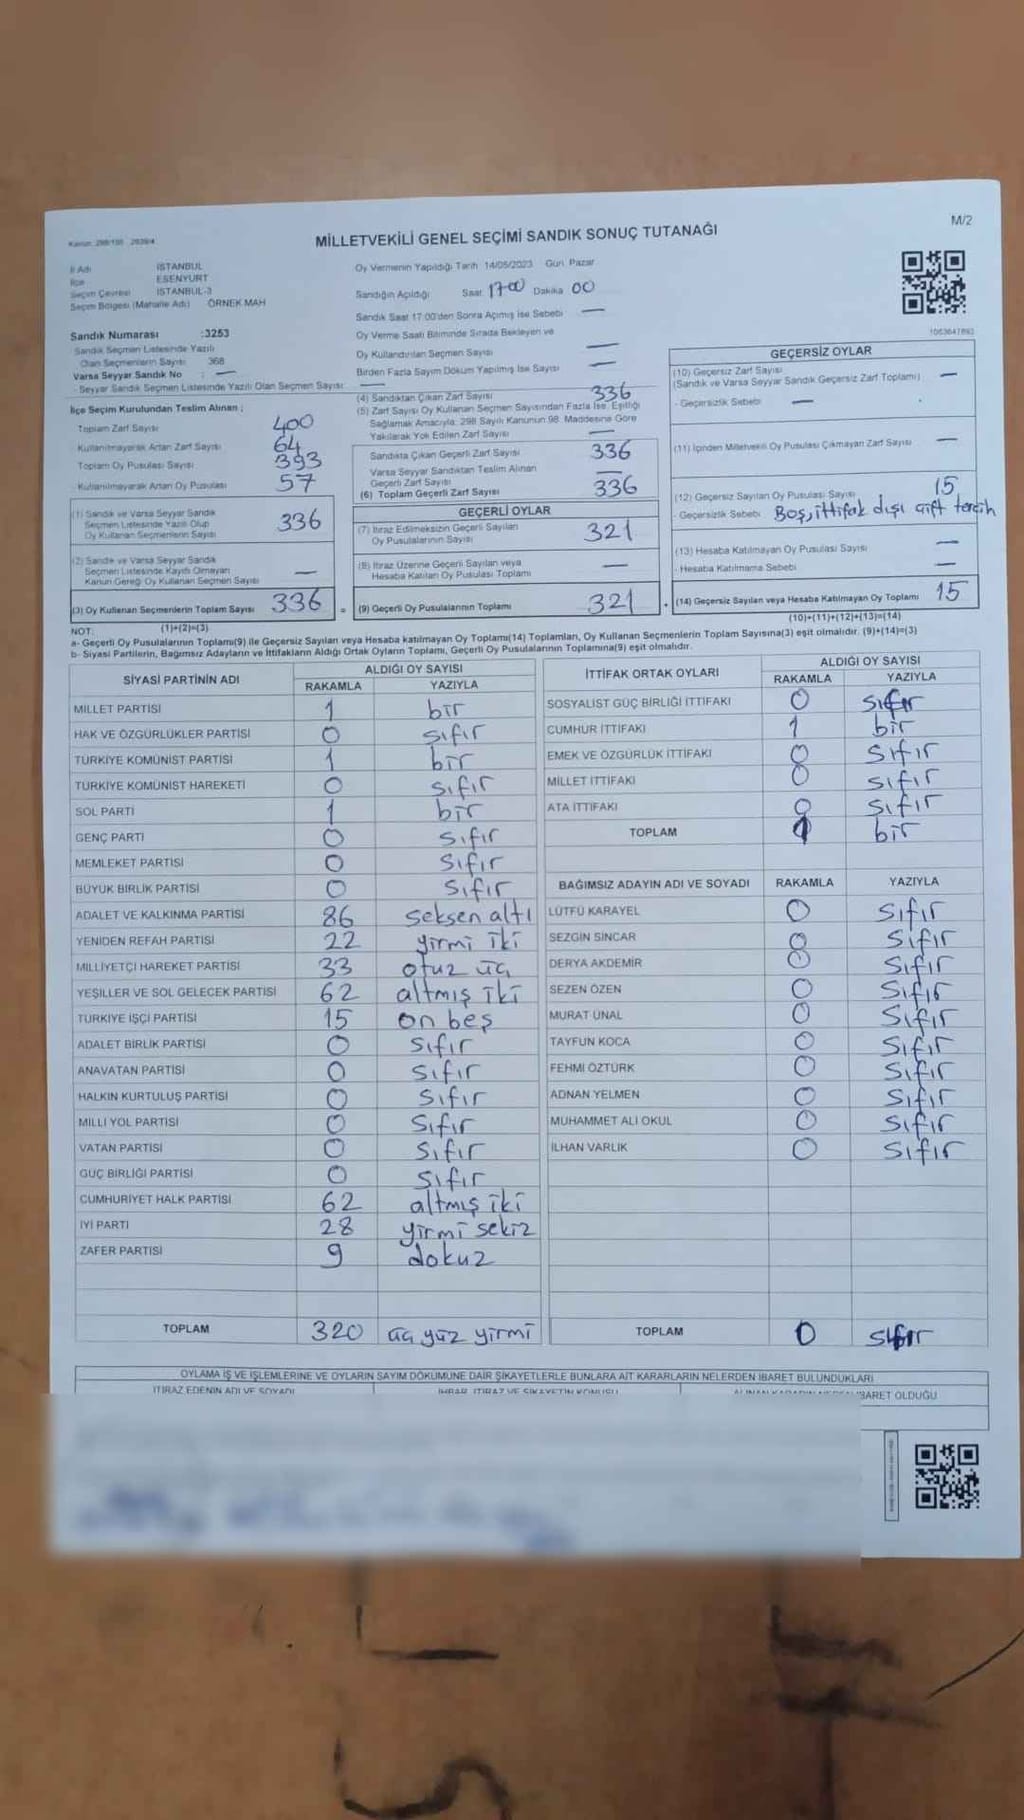 Kanun: 298/105 2839/4
M/2
MİLLETVEKİLİ GENEL SEÇİMİ SANDIK SONUÇ TUTANAĞI
İl Adı İSTANBUL
İlçe ESENYURT
Seçim Çevresi İSTANBUL-3
Seçim Bölgesi (Mahalle Adı) ÖRNEK MAH
Sandık Numarası :3253
Sandık Seçmen Listesinde Yazılı
Olan Seçmenlerin Sayısı 368
Varsa Seyyar Sandık No : —
- Seyyar Sandık Seçmen Listesinde Yazılı Olan Seçmen Sayısı: —
Oy Vermenin Yapıldığı Tarih 14/05/2023 Gün: Pazar
Sandığın Açıldığı Saat 17:00 Dakika 00
Sandık Saat 17:00'den Sonra Açımış İse Sebebi —
Oy Verme Saati Bitiminde Sırada Bekleyen ve
Oy Kullandırılan Seçmen Sayısı —
Birden Fazla Sayım Döküm Yapılmış İse Sayısı —
1063647893
İlçe Seçim Kurulundan Teslim Alınan ;
Toplam Zarf Sayısı 400
Kullanılmayarak Artan Zarf Sayısı 64
Toplam Oy Pusulası Sayısı 393
- Kullanılmayarak Artan Oy Pusulası 57
(1) Sandık ve Varsa Seyyar Sandık
Seçmen Listesinde Yazılı Olup
Oy Kullanan Seçmenlerin Sayısı 336
(2) Sandık ve Varsa Seyyar Sandık
Seçmen Listesinde Kayıtlı Olmayan
Kanun Gereği Oy Kullanan Seçmen Sayısı —
(3) Oy Kullanan Seçmenlerin Toplam Sayısı 336
(1)+(2)=(3)
(4) Sandıktan Çıkan Zarf Sayısı 336
(5) Zarf Sayısı Oy Kullanan Seçmen Sayısından Fazla İse, Eşitliği
Sağlamak Amacıyla; 298 Sayılı Kanunun 98. Maddesine Göre
Yakılarak Yok Edilen Zarf Sayısı —
Sandıkta Çıkan Geçerli Zarf Sayısı 336
Varsa Seyyar Sandıktan Teslim Alınan
Geçerli Zarf Sayısı —
(6) Toplam Geçerli Zarf Sayısı 336
GEÇERLİ OYLAR
(7) İtiraz Edilmeksizin Geçerli Sayılan
Oy Pusulalarının Sayısı 321
(8) İtiraz Üzerine Geçerli Sayılan veya
Hesaba Katılan Oy Pusulası Toplamı —
(9) Geçerli Oy Pusulalarının Toplamı 321
GEÇERSİZ OYLAR
(10) Geçersiz Zarf Sayısı
(Sandık ve Varsa Seyyar Sandık Geçersiz Zarf Toplamı) —
- Geçersizlik Sebebi —
(11) İçinden Milletvekili Oy Pusulası Çıkmayan Zarf Sayısı —
(12) Geçersiz Sayılan Oy Pusulası Sayısı 15
- Geçersizlik Sebebi Boş, ittifak dışı çift tercih
(13) Hesaba Katılmayan Oy Pusulası Sayısı —
- Hesaba Katılmama Sebebi —
(14) Geçersiz Sayılan veya Hesaba Katılmayan Oy Toplamı 15
(10)+(11)+(12)+(13)=(14)
NOT:
a- Geçerli Oy Pusulalarının Toplamı(9) ile Geçersiz Sayılan veya Hesaba katılmayan Oy Toplamı(14) Toplamları, Oy Kullanan Seçmenlerin Toplam Sayısına(3) eşit olmalıdır. (9)+(14)=(3)
b- Siyasi Partilerin, Bağımsız Adayların ve İttifakların Aldığı Ortak Oyların Toplamı, Geçerli Oy Pusulalarının Toplamına(9) eşit olmalıdır.
SİYASİ PARTİNİN ADI ALDIĞI OY SAYISI
RAKAMLA YAZIYLA
MİLLET PARTİSİ 1 bir
HAK VE ÖZGÜRLÜKLER PARTİSİ 0 sıfır
TÜRKİYE KOMÜNİST PARTİSİ 1 bir
TÜRKİYE KOMÜNİST HAREKETİ 0 sıfır
SOL PARTİ 1 bir
GENÇ PARTİ 0 sıfır
MEMLEKET PARTİSİ 0 sıfır
BÜYÜK BİRLİK PARTİSİ 0 sıfır
ADALET VE KALKINMA PARTİSİ 86 seksen altı
YENİDEN REFAH PARTİSİ 22 yirmi iki
MİLLİYETÇİ HAREKET PARTİSİ 33 otuz üç
YEŞİLLER VE SOL GELECEK PARTİSİ 62 altmış iki
TÜRKİYE İŞÇİ PARTİSİ 15 on beş
ADALET BİRLİK PARTİSİ 0 sıfır
ANAVATAN PARTİSİ 0 sıfır
HALKIN KURTULUŞ PARTİSİ 0 sıfır
MİLLİ YOL PARTİSİ 0 sıfır
VATAN PARTİSİ 0 sıfır
GÜÇ BİRLİĞİ PARTİSİ 0 sıfır
CUMHURİYET HALK PARTİSİ 62 altmış iki
İYİ PARTİ 28 yirmi sekiz
ZAFER PARTİSİ 9 dokuz
TOPLAM 320 üç yüz yirmi
İTTİFAK ORTAK OYLARI ALDIĞI OY SAYISI
RAKAMLA YAZIYLA
SOSYALİST GÜÇ BİRLİĞİ İTTİFAKI 0 sıfır
CUMHUR İTTİFAKI 1 bir
EMEK VE ÖZGÜRLÜK İTTİFAKI 0 sıfır
MİLLET İTTİFAKI 0 sıfır
ATA İTTİFAKI 0 sıfır
TOPLAM 1 bir
BAĞIMSIZ ADAYIN ADI VE SOYADI RAKAMLA YAZIYLA
LÜTFÜ KARAYEL 0 sıfır
SEZGİN SİNCAR 0 sıfır
DERYA AKDEMİR 0 sıfır
SEZEN ÖZEN 0 sıfır
MURAT ÜNAL 0 sıfır
TAYFUN KOCA 0 sıfır
FEHMİ ÖZTÜRK 0 sıfır
ADNAN YELMEN 0 sıfır
MUHAMMET ALİ OKUL 0 sıfır
İLHAN VARLIK 0 sıfır
TOPLAM 0 sıfır
OYLAMA İŞ VE İŞLEMLERİNE VE OYLARIN SAYIM DÖKÜMÜNE DAİR ŞİKAYETLERLE BUNLARA AİT KARARLARIN NELERDEN İBARET BULUNDUKLARI
İTİRAZ EDENİN ADI VE SOYADI İHBAR, İTİRAZ VE ŞİKAYETİN KONUSU İBARET OLDUĞU